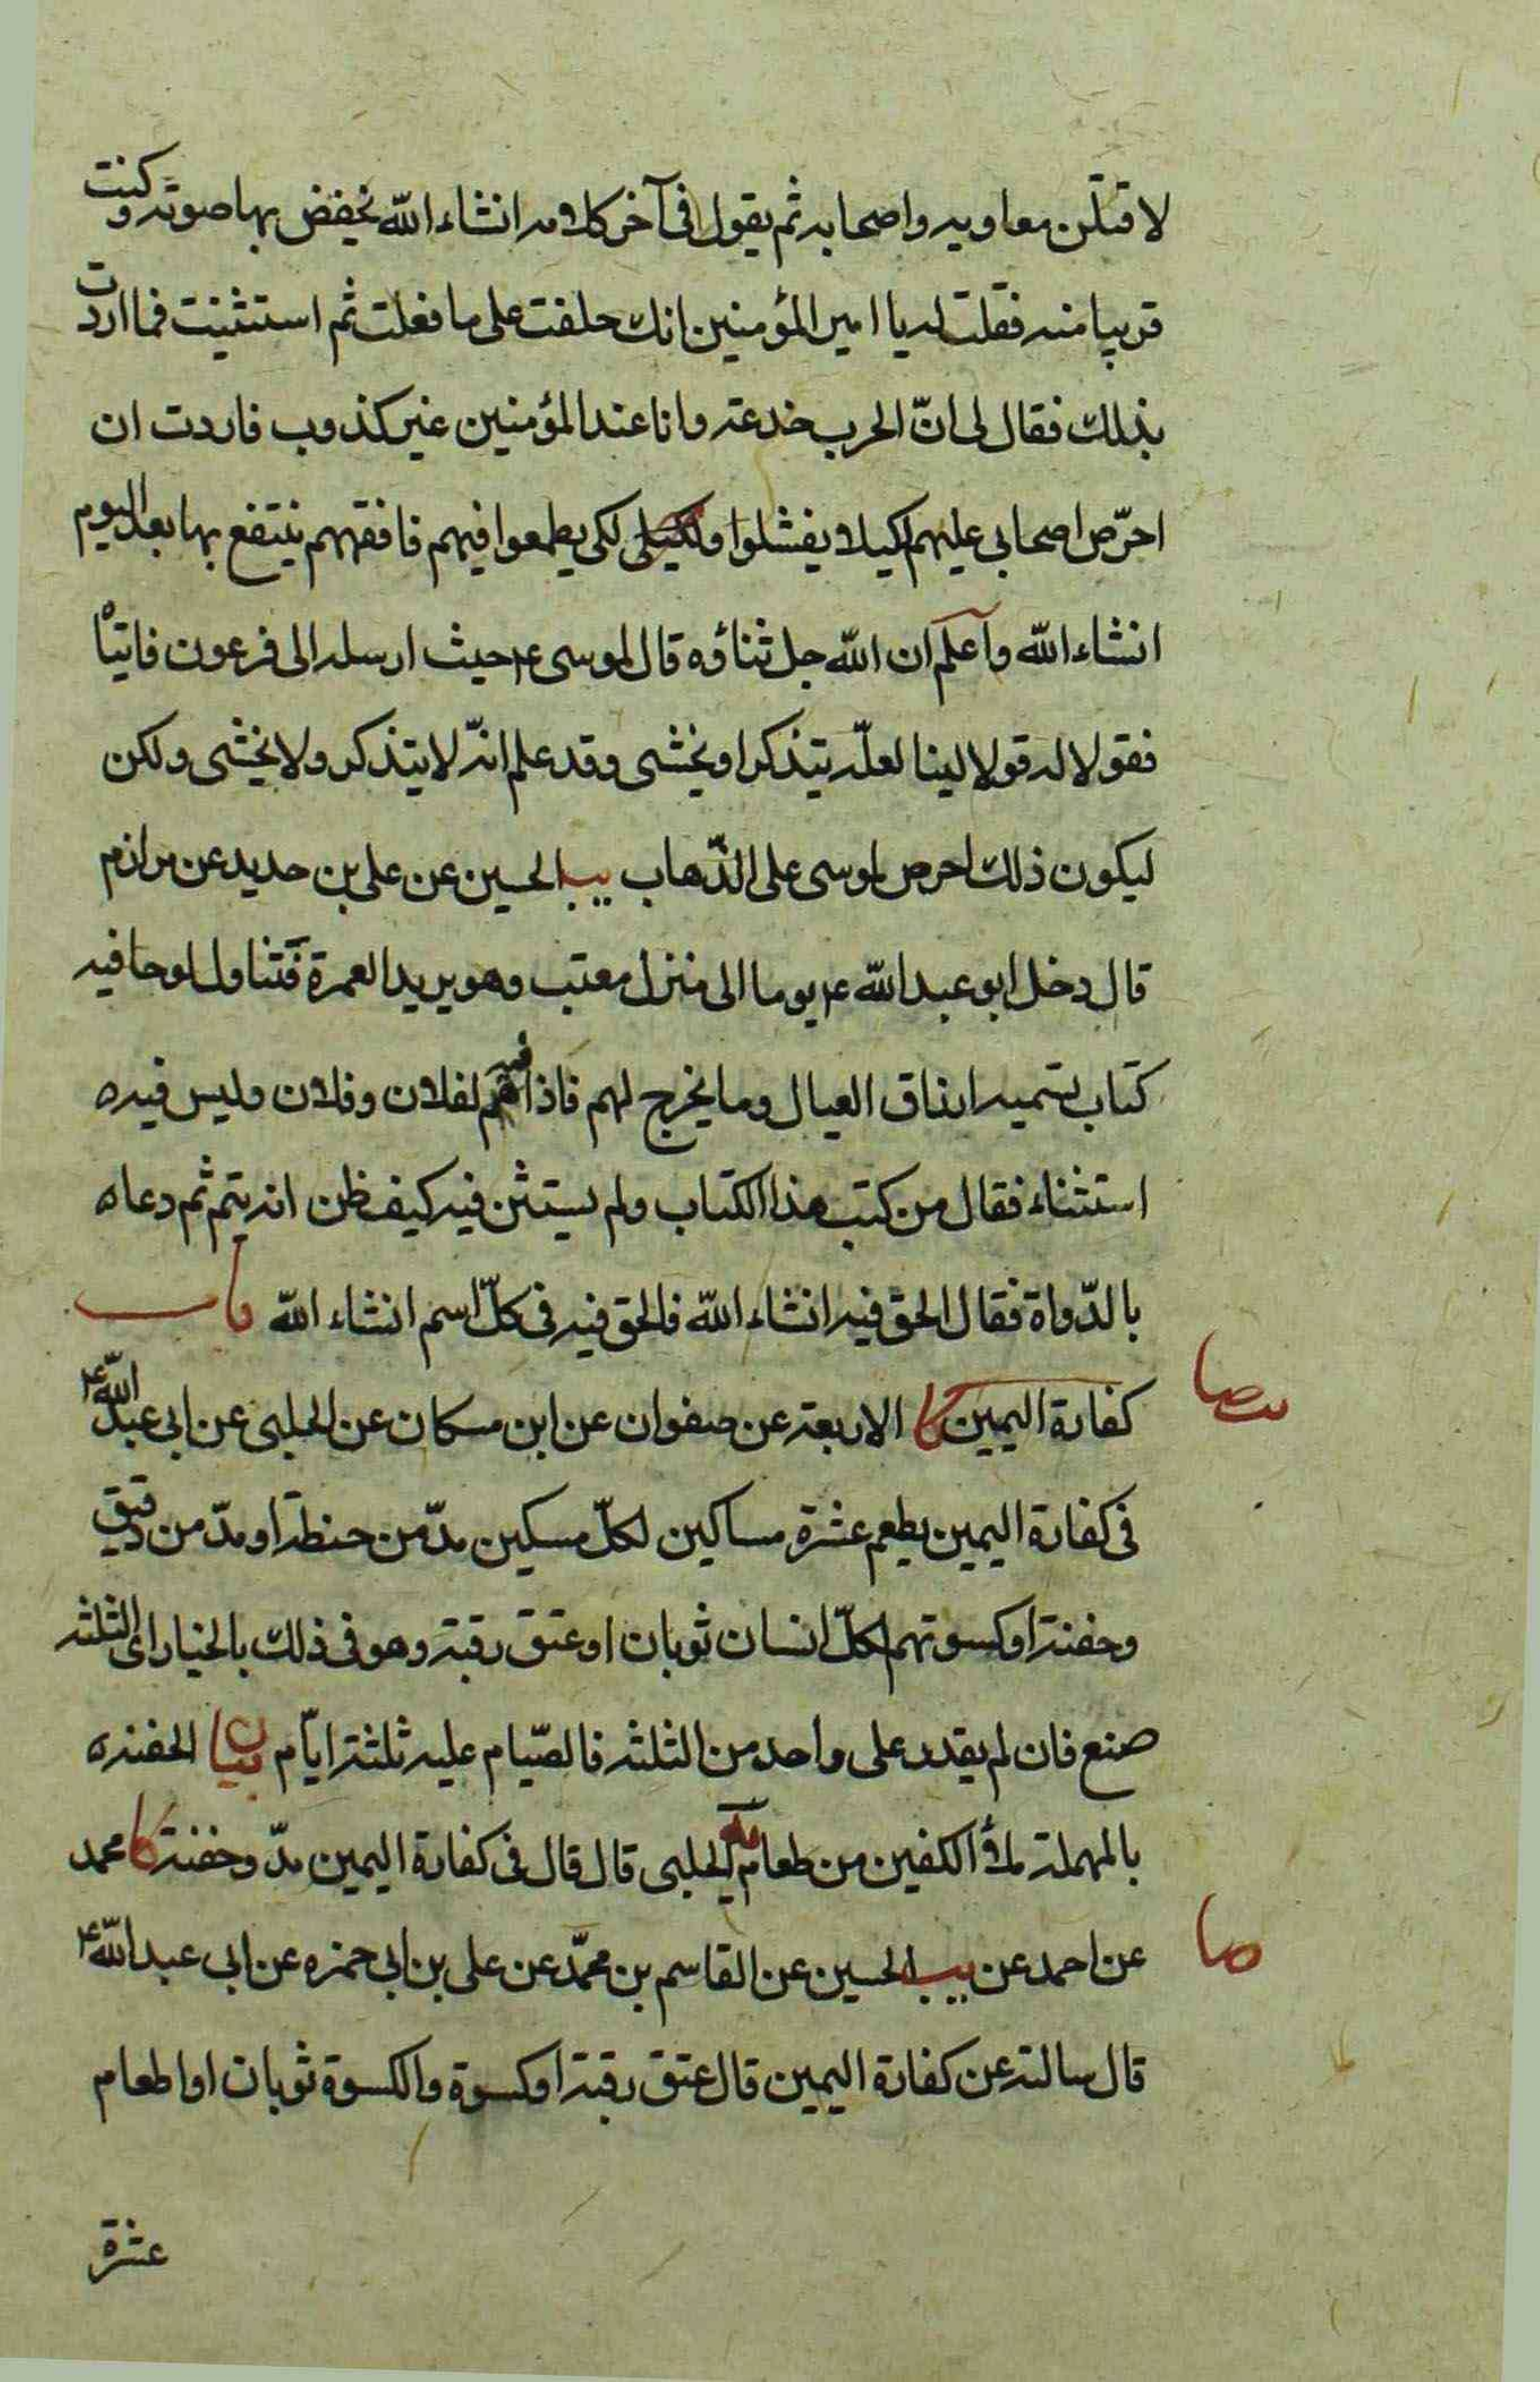 لاقتلن معاويه واصحابه ثم يقول فى آخر كلامه انشاء الله يخفض بها صوته وكنت
قريبا منه فقلت له يا امير المؤمنين انك حلفت على ما فعلت ثم استثنيت فما اردت
بذلك فقال لى انّ الحرب خدعة وانا عند المؤمنين غير كذوب فاردت ان
احرّص اصحابى عليهم كيلا يفشلوا ولكى لكى يطمعوا فيهم فافقههم ينتفع بها بعد اليوم
انشاء الله واعلم ان الله جل ثناؤه قال لموسى ع حيث ارسله الى فرعون فاتياه
فقولا له قولا لينا لعلّه يتذكر او يخشى وقد علم انّه لا يتذكر ولا يخشى ولكن
ليكون ذلك احرص لموسى على الذّهاب يب الحسين عن على بن حديد عن مرازم
قال دخل ابو عبد الله ع يوما الى منزل معتب وهو يريد العمرة فتناول لوحا فيه
كتاب تسميه ارزاق العيال وما يخرج لهم فاذا فيه لفلان وفلان وليس فيه
استثناء فقال من كتب هذا الكتاب ولم يستثن فيه كيف ظن انه يتم ثم دعاه
بالدّواة فقال الحق فيه انشاء الله فالحق فيه فى كلّ اسم انشاء الله باب
كفارة اليمين كا الاربعة عن صفوان عن ابن مسكان عن الحلبى عن ابى عبد الله ع
فى كفارة اليمين يطعم عشرة مساكين لكلّ مسكين مدّ من حنطة او مدّ من دقيق
وحفنة او كسوتهم لكلّ انسان ثوبان او عتق رقبة وهو فى ذلك بالخيار اى الثلثه
صنع فان لم يقدر على واحد من الثلثه فالصّيام عليه ثلثة ايّام بيان الحفنه
بالمهملة ملأ الكفين من طعام يه الحلبى قال قال فى كفارة اليمين مدّ وحفنة كا محمد
عن احمد عن يب الحسين عن القاسم بن محمّد عن على بن ابى حمزه عن ابى عبد الله ع
قال سالته عن كفارة اليمين قال عتق رقبة او كسوة والكسوة ثوبان او اطعام
عشرة